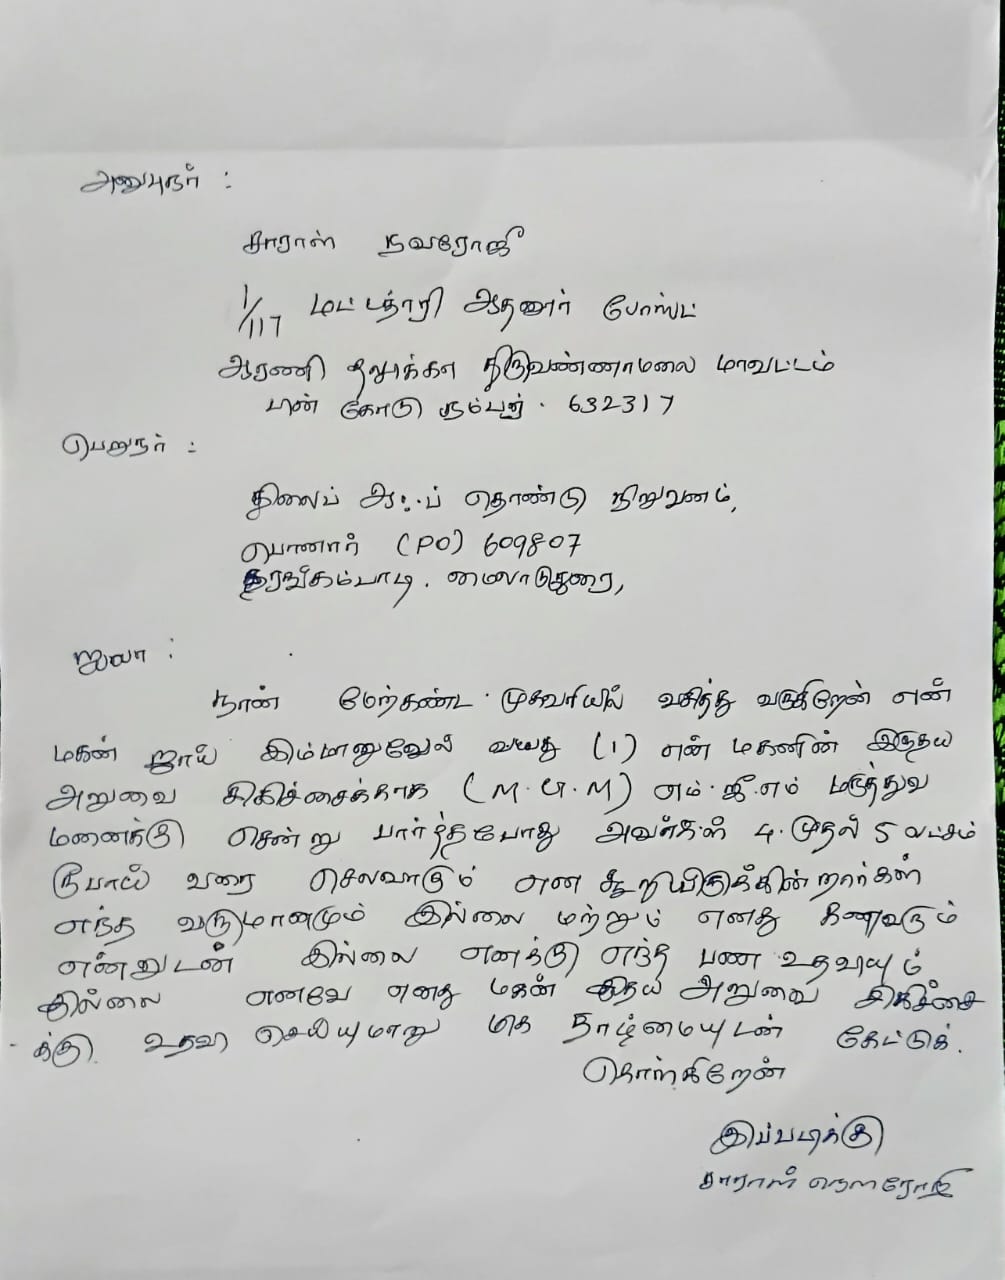 அனுபுநர் :
சாராள் நவரோஜி
1/117 மட்டத்தாரி ஆதனூர் போஸ்ட்
ஆரணி தலுக்கா திருவண்ணாமலை மாவட்டம்
பின் கோடு நம்பர் . 632317
பெறுநர் :
லைப் ஆஃப் தொண்டு நிறுவனம்,
பொறையார் (PO) 609807
தரங்கம்பாடி . மைலாடுதுரை,
ஐயா :
நான் மேற்கண்ட முகவரியில் வசித்து வருகிறேன் என்
மகன் ஜாய் இம்மானுவேல் வயது (1) என் மகனின் இருதய
அறுவை சிகிச்சைக்காக (M.G.M) எம்.ஜீ.எம் மருத்துவ
மனைக்கு சென்று பார்த்தபோது அவர்கள் 4 முதல் 5 லட்சம்
ரூபாய் வரை செலவாகும் என கூறியிருக்கின்றார்கள்
எந்த வருமானமும் இல்லை மற்றும் எனது கணவரும்
என்னுடன் இல்லை எனக்கு எந்த பண உதவியும்
இல்லை எனவே எனது மகன் இதய அறுவை சிகிச்சை
க்கு உதவி செய்யுமாறு மிக தாழ்மையுடன் கேட்டுக்.
கொள்கிறேன்
இப்படிக்கு
சாராள் நௌரோஜி